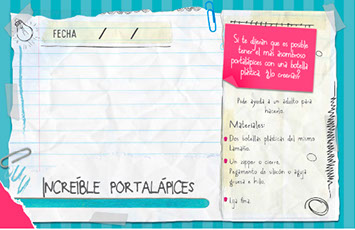 FECHA / /
Si te dijeran que es posible
tener el más asombroso
portalápices con una botella
plástica ¿lo creerías?
Pide ayuda a un adulto para
hacerlo.
Materiales:
Dos botellas plásticas del mismo
tamaño.
Un zipper o cierre.
Pegamento de silicón o aguja
gruesa e hilo.
Lija fina.
INCREÍBLE PORTALÁPICES